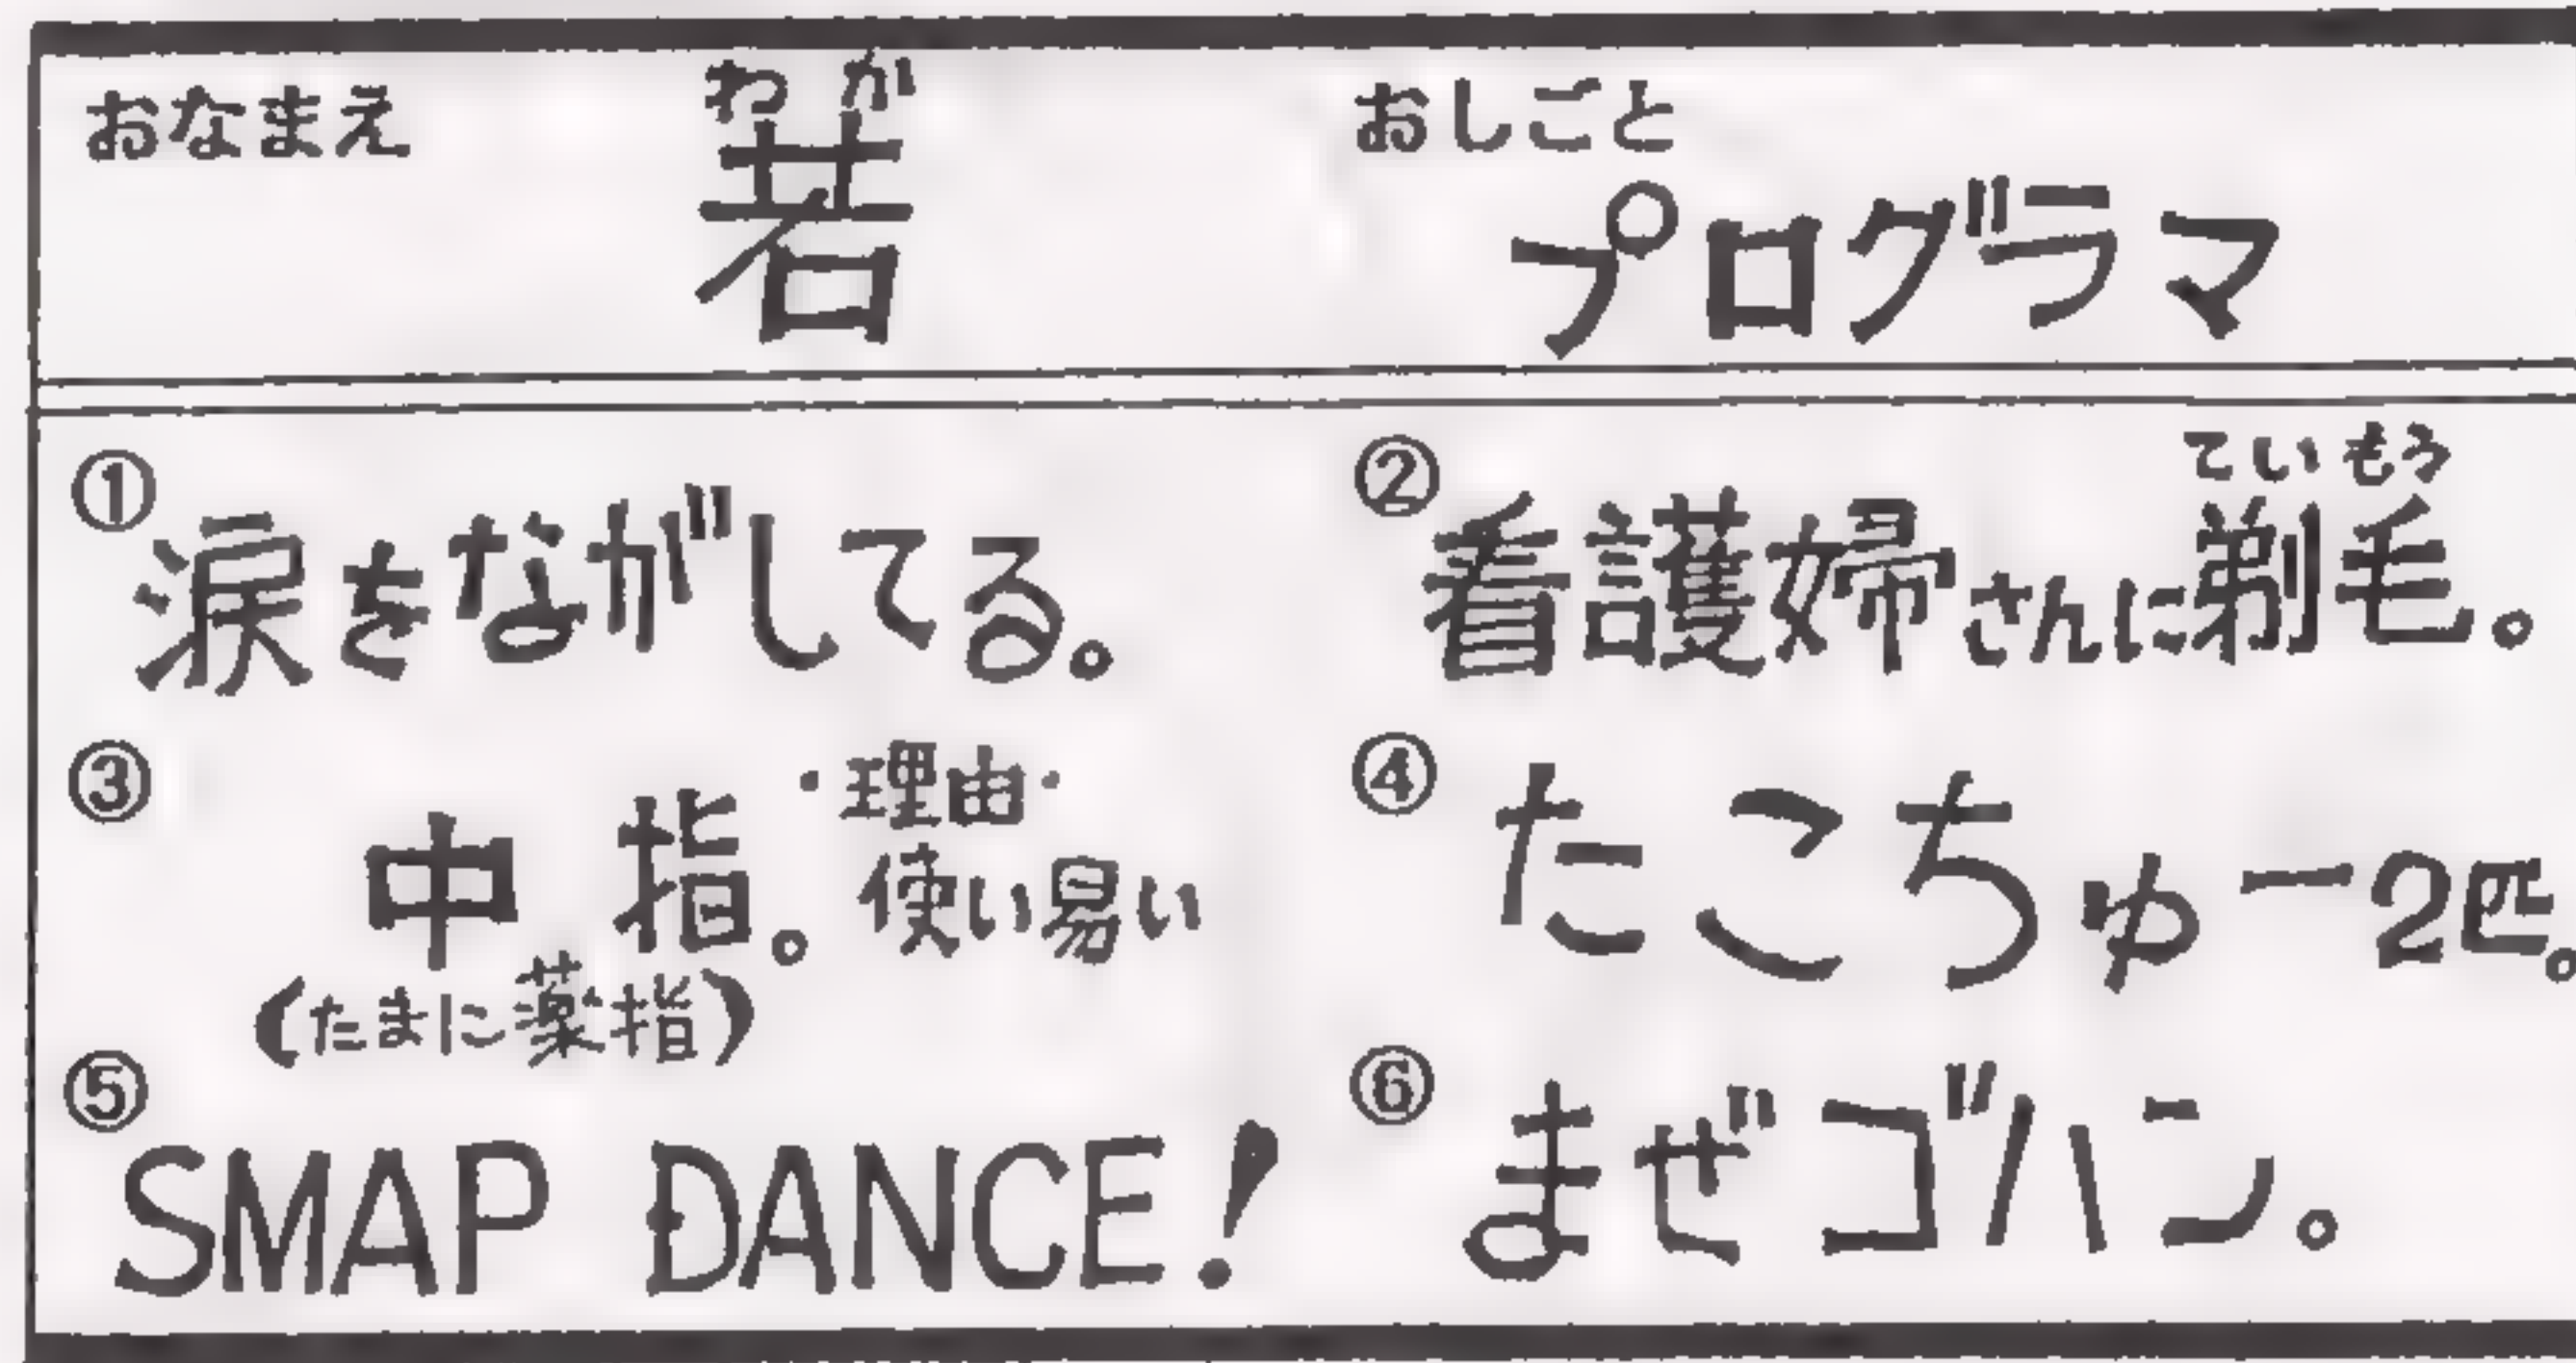 おなまえ
わが
若
おしごと
プログラマ
①
涙をながしてる。
②
ていもう
看護婦さんに剃毛。
③
中指。
・理由・
使い易い
(たまに薬指)
④
たこちゅー2匹。
⑤
SMAP DANCE!
⑥
まぜゴハン。